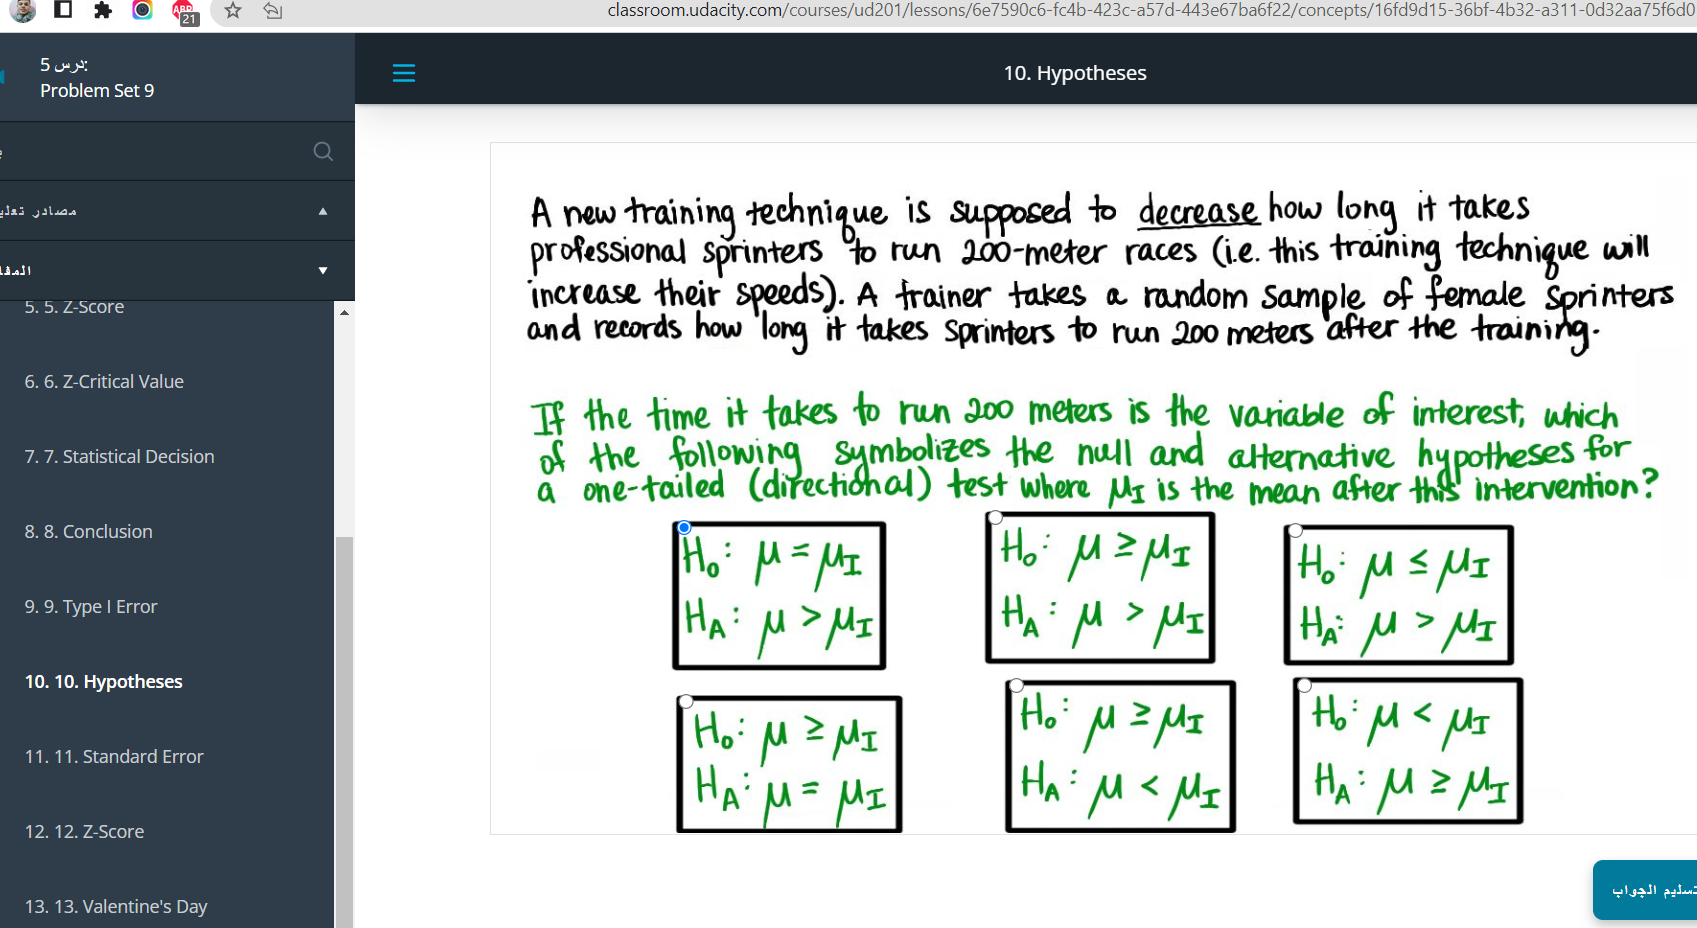 classroom.udacity.com/courses/ud201/lessons/6e7590c6-fc4b-423c-a57d-443e67ba6f22/concepts/16fd9d15-36bf-4b32-a311-0d32aa75f6d0
ABP
21
درس 5:
Problem Set 9
مصادر
5. 5. Z-Score
6. 6. Z-Critical Value
7. 7. Statistical Decision
8. 8. Conclusion
9. 9. Type I Error
10. 10. Hypotheses
11. 11. Standard Error
12. 12. Z-Score
13. 13. Valentine's Day
10. Hypotheses
A new training technique is supposed to decrease how long it takes
professional sprinters to run 200-meter races (i.e. this training technique will
increase their speeds). A trainer takes a random sample of female sprinters
and records how long it takes sprinters to run 200 meters after the training.
If the time it takes to run 200 meters is the variable of interest, which
of the following symbolizes the null and alternative hypotheses for
a one-tailed (directional) test where μI is the mean after this intervention?
H₀: μ = μI
HA: μ > μI
H₀: μ ≥ μI
HA: μ > μI
H₀: μ ≤ μI
HA: μ > μI
H₀: μ ≥ μI
HA: μ = μI
H₀: μ ≥ μI
HA: μ < μI
H₀: μ < μI
HA: μ ≥ μI
تسليم الجواب